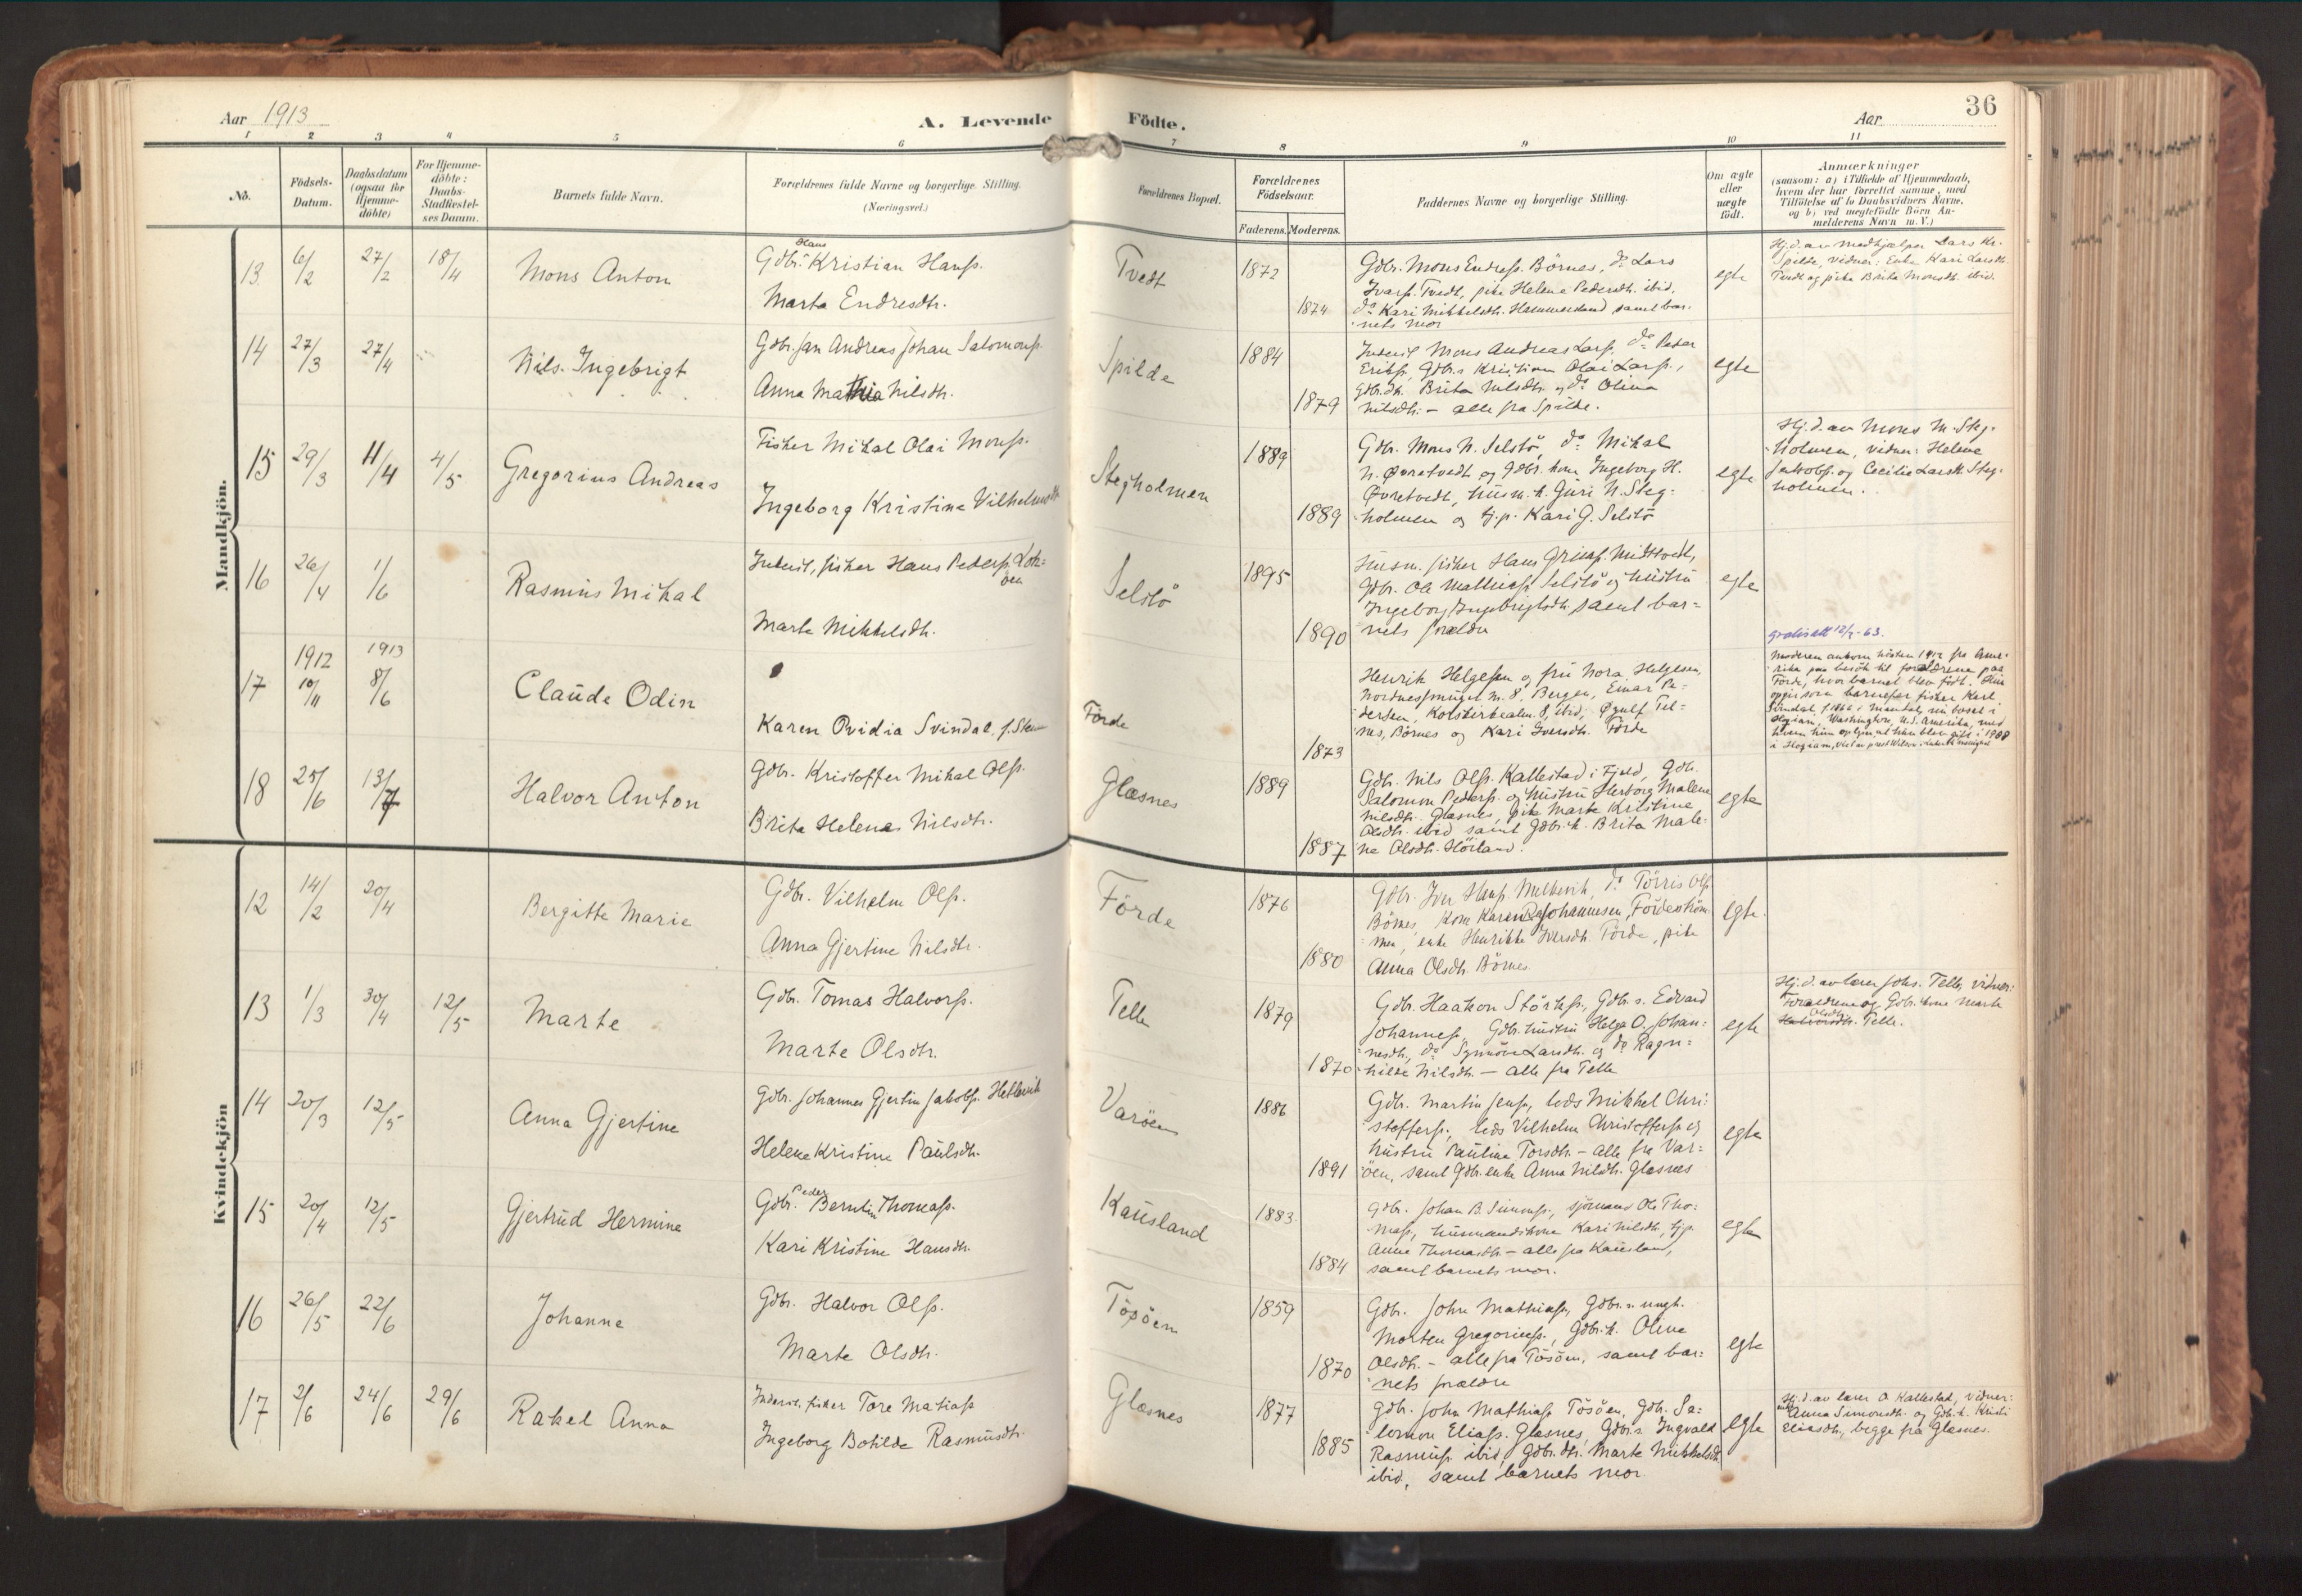 Aar 1913
A. Levende
Födte.
Aar
36
1 2 3 4 5 6 7 8 9 10 11
No.
Födsels-
Datum.
Daabsdatum
(ogsaa for
Hjemme-
döbte)
For Hjemme-
döbte:
Daabs-
Stadfæstel-
ses Datum.
Barnets fulde Navn.
Forældrenes fulde Navne og borgerlige Stilling.
(Næringsvei.)
Forældrenes Bopæl.
Forældrenes
Födselsaar.
Faderens. Moderens.
Faddernes Navne og borgerlige Stilling.
Om ægte
eller
uægte
födt.
Anmærkninger
(saasom: a) i Tilfælde af Hjemmedaab,
hvem der har forrettet samme, med
Tilföielse af to Daabsvidners Navne,
og b) ved uægtefödte Börn An-
melderens Navn m. V.)
Mandkjön.
13 6/2 27/2 18/4 Mons Anton
Gdbr. Hans Kristian Hanss.
Marta Endresdtr.
Tvedt 1872
1874
Gdbr. Mons Endress. Börnes, do Lars
Ivars. Tvedt, pike Helene Pedersdtr. ibid,
do Kari Mikkelsdtr. Hammersland samt bar-
nets mor
egte
Hj.d. av medhjælper Lars Kr.
Spilde, vidner: Enke Kari Larsdtr.
Tvedt og pike Brita Monsdtr. ibid.
14 27/3 27/4 Nils Ingebrigt
Gdbr. Jan Andreas Johan Salomons.
Anna Mathia Nilsdtr.
Spilde 1884
1879
Inderst Mons Andreas Lars., do Peder
Eriks., Gdbr.s Kristian Olai Lars.,
Gdbr.dtr. Brita Nilsdtr. og do Olina
Nilsdtr. - alle fra Spilde.
egte
15 29/3 11/4 4/5 Gregorius Andreas
Fisker Mikal Olai Monss.
Ingeborg Kristine Vilhelmsdtr
Stegholmen 1889
1889
Gdbr. Mons N. Selstö, do Mikal
N. Övretvedt og Gdbr. kone Ingeborg H.
Övretvedt, husm. k. Guri N. Steg-
holmen og tj.p. Kari G. Selstö
egte
Hj.d. av Mons M. Steg-
holmen, vidner: Helene
Jakobs. og Cecilie Larsdt. Steg-
holmen.
16 26/4 1/6 Rasmus Mikal
Inderst, fisker Hans Peders. Loh-
öen
Marta Mikkelsdtr.
Selstö 1895
1890
Husm. fisker Hans Grieg. Midttvedt,
Gdbr. Ole Mathias. Selstö og hustru
Ingeborg Ingebrigtsdtr. samt bar-
nets forældre
egte
17 1912 10/11 1913 8/6 Claude Odin
Karen Ovidia Svindal, f. Stein
Förde
1873
Henrik Helgesen og fru Nora Helgesen,
Nordnessmuget nr. 8, Bergen, Einar Pe-
dersen, 8, ibid, Öyulf Tel-
nes, Börnes og Kari Iversdtr. Förde
gratis att 12/7-63.
Moderen ankom hösten 1912 fra Ame-
rika paa besök til forældrene paa
Förde, hvor barnet blev födt. Hun
opgir som barnefar fisker Karl
Svindal, f. 1866 i Mandal, nu bosat i
Hoqiam, Washington, U.S. Amerika, med
hvem hun oplyser at hun blev gift i 1908
i Hoqiam, vist av prest Wilson,
18 25/6 13/7 Halvor Anton
Gdbr. Kristoffer Mikal Ols.
Brita Helena Nilsdtr.
Glæsnes 1889
1887
Gdbr. Nils Ols. Kallestad i Fjeld, Gdbr.
Salomon Peders. og hustru Herborg Malene
Nilsdtr. Glæsnes, pike Marta Kristine
Olsdtr. ibid samt Gdbr.k. Brita Male-
ne Olsdtr. Hörland.
egte
Kvindekjön
12 14/2 20/4 Bergitte Marie
Gdbr. Vilhelm Ols.
Anna Gjertine Nilsdtr.
Förde 1876
1880
Gdbr. Iver Hans. Mulkevik, do Törris Ols.
Börnes, Kone Karen Johannesen, Fördeström-
men, enke Henrikke Iversdtr. Förde, pike
Anna Olsdtr. Börnes
egte.
13 1/3 30/4 12/5 Marte
Gdbr. Tomas Halvors.
Marte Olsdtr.
Telle 1879
1870
Gdbr. Haakon Störks., Gdbr.s. Edvard
Johanness., Gdbr. hustru Helga O. Johan-
nesdtr., do Synnöve Larsdtr. og do Ragn-
hilde Nilsdtr. - alle fra Telle
egte
Hj.d. av lærer Johs. Telle, vidner:
Forældrene og Gdbr. kone Marte
Halvorsdtr. Olsdtr. Telle.
14 20/3 12/5 Anna Gjertine
Gdbr. Johannes Gjertin Jakobs. Hettevik
Helene Kristine Paulsdtr.
Varöen 1886
1891
Gdbr. Martin Jens., leds Mikkel Chri-
stoffers., leds Vilhelm Christoffers. og
hustru Pauline Torsdtr. - alle fra Var-
öen, samt Gdbr. enke Anna Nilsdtr. Glæsnes
egte
15 20/4 12/5 Gjertrud Hermine
Gdbr. Peder Berntin Thomas.
Kari Kristine Hansdtr.
Kausland 1883
1884
Gdbr. Johan B. Simons., sjömand Ole Tho-
mas., husmandskone Kari Nilsdtr., tj.p.
Anna Thomasdtr. - alle fra Kausland,
samt barnets mor.
egte
16 26/5 22/6 Johanna
Gdbr. Halvor Ols.
Marte Olsdtr.
Tösöen 1859
1870
Gdbr. John Mathias., Gdbr.s. ungk.
Morten Gregorius., Gdbr.k. Oline
Olsdtr. - alle fra Tösöen, samt bar-
nets forældre
egte
17 2/6 24/6 29/6 Rakel Anna
Inderst, fisker Tore Matias
Ingeborg Bothilde Rasmusdtr.
Glæsnes 1877
1885
Gdbr. John Mathias. Tösöen, Gdbr. Sa-
lomon Elias. Glæsnes, Gdbr.s Ingvald
Rasmus. ibid, Gdbr. dtr. Marte Mikkelsdtr.
ibid, samt barnets mor
egte
Hj.d. av lærer O. Kallestad, vidner:
enke Anna Simonsdtr. og Gdbr.k. Kristi
Eliasdtr., begge fra Glæsnes.